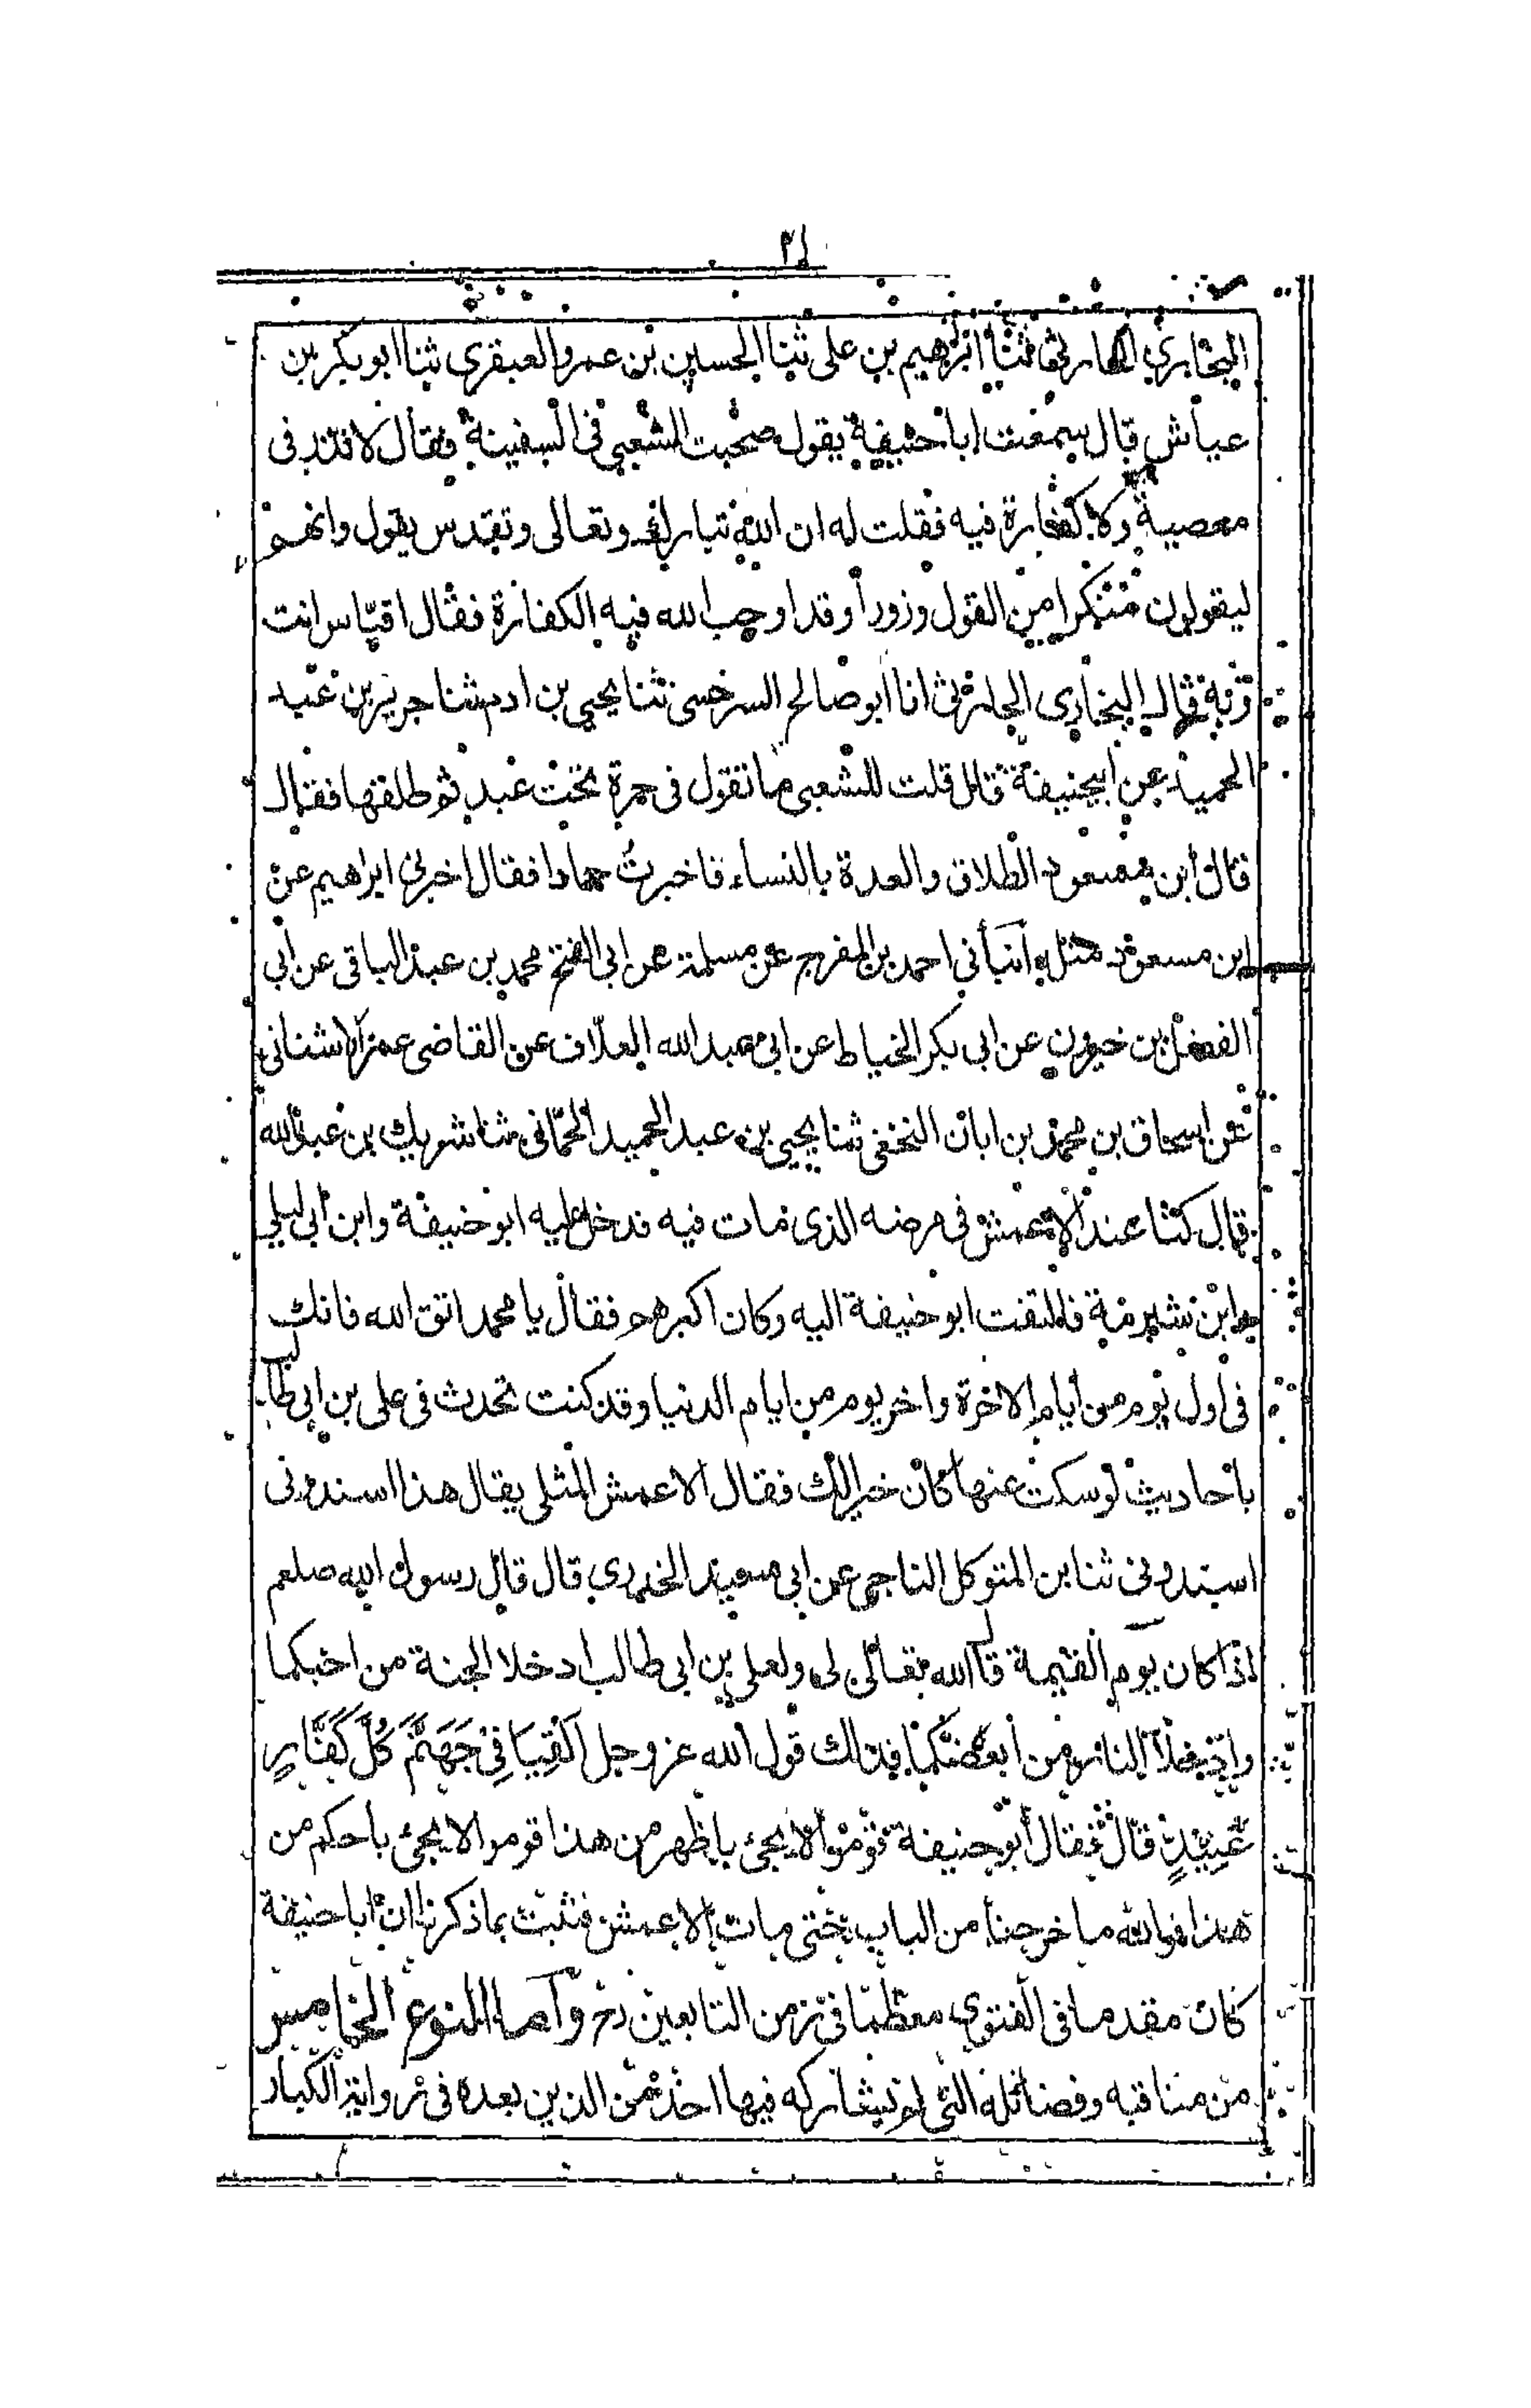 ٢١
البخاري الحارثي ثنا ابرٰهيم بن على ثنا الحسين بن عمرو العبقرى ثنا ابو بكر بن
عياش قال سمعت ابا حنيفة يقول صحبت الشعبي فى السفينة فقال لا نذر فى
معصية ولا كفارة فيه فقلت له ان الله تبارك وتعالى وتقدس يقول وانهم
ليقولون منكرا من القول وزورا وقد اوجب الله فيه الكفارة فقال اقيّاس انت
وبه قال البخارى الحارثى انا ابو صالح السرخسى ثنا يحيى بن ادم ثنا جرير بن عبد
الحميد عن ابيحنيفة قال قلت للشعبى ما تقول فى حرة تحت عبد ثم طلقها فقال
قال ابن مسعود الطلاق والعدة بالنساء فاخبرت حمادا فقال اخبرنى ابراهيم عن
ابن مسعود مثله انبأنى احمد بن المفرج عن مسلمة عن ابى الفتح محمد بن عبد الباقى عن ابى
الفضل بن خيرون عن ابى بكر الخياط عن ابى عبد الله العلّاف عن القاضى عمر الاشنانى
عن اسحاق بن محمد بن ابان النخعى ثنا يحيى بن عبد الحميد الحمّانى ثنا شريك بن عبد الله
قال كنا عند الاعمش فى مرضه الذى مات فيه فدخل عليه ابو حنيفة وابن ابى ليلى
وابن شبرمة فالتفت ابو حنيفة اليه وكان اكبرهم فقال يا محمد اتق الله فانك
فى اول يوم من ايام الاخرة واخر يوم من ايام الدنيا وقد كنت تحدث فى على بن ابى طالب
باحاديث لو سكت عنها كان خيرا لك فقال الاعمش المثلى يقال هذا اسندونى
اسندونى ثنا بن المتوكل الناجى عن ابى سعيد الخدرى قال قال رسول الله صلعم
اذا كان يوم القيٰمة قال الله تعالى لى ولعلى بن ابى طالب ادخلا الجنة من احبكما
وادخلا النار من ابغضكما فذلك قول الله عز وجل اَلْقِيَا فِىْ جَهَنَّمَ كُلَّ كَفَّارٍ
عَنِيْدٍ قال فقال ابو حنيفة قوموا لا يجئ باظهر من هذا قوموا لا يجئ باحكم من
هذا فوالله ما خرجنا من الباب حتى مات الاعمش فثبت بما ذكرنا ان ابا حنيفة
كان مقدما فى الفتوى معظما فى زمن التابعين رض وآما النوع الخامس
من مناقبه وفضائله التى لم يشاركه فيها احد من الذين بعده فى رواية الكبار